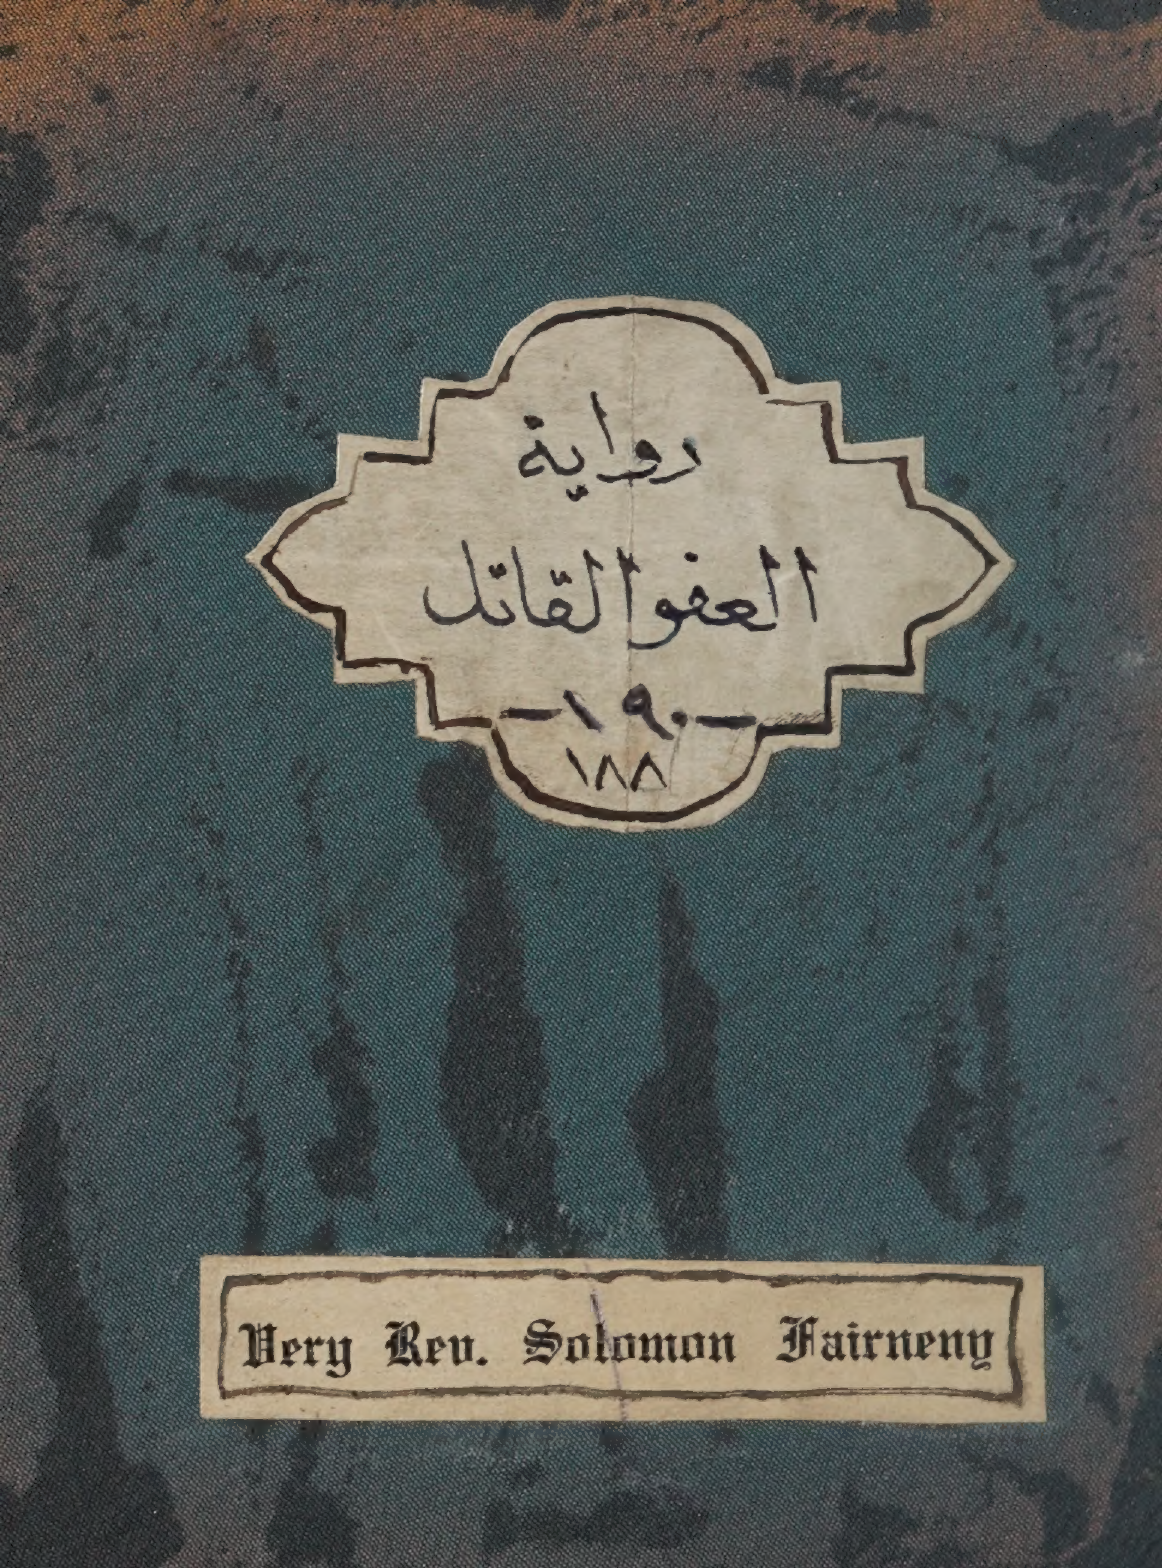 رواية
العفو القاتل
-١٩٠-
١٨٨
Very Rev. Solomon Fairneny